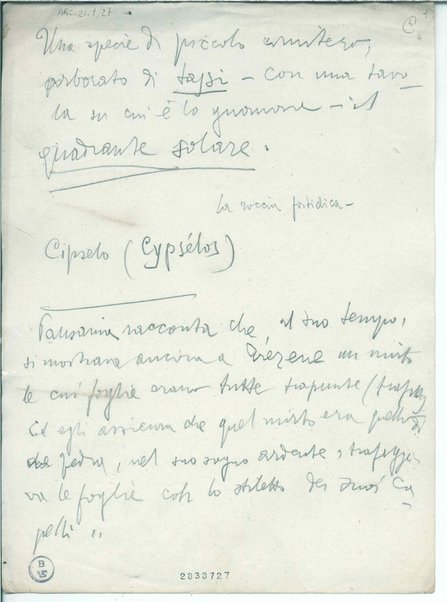 ARC.21.1/27
Una specie di piccolo cimitero,
arborato di tassi – con una tavo-
la su cui è lo gnomone – il
quadrante solare.
La roccia fatidica –
Cipselo (Cypsélos)
Pausania racconta che, al suo tempo,
si mostrava ancora a Trézene un mirto
le cui foglie erano tutte trapunte
Ed egli assicura che quel mirto era quello di
Fedra, nel suo sogno ardente, trafigge-
va le foglie con lo stiletto dei suoi ca-
pelli..
B
2338727